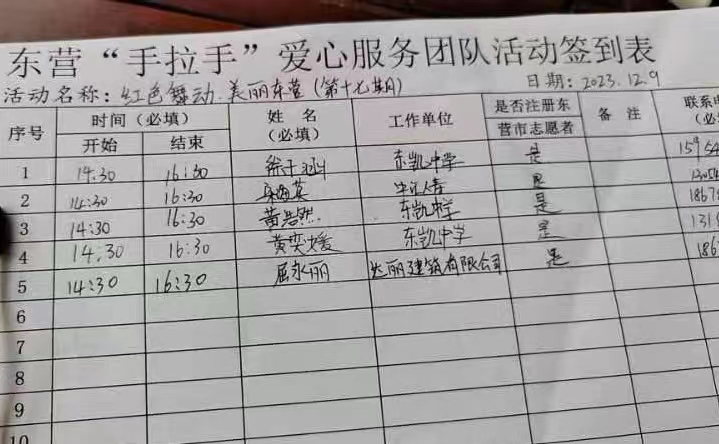 东营“手拉手”爱心服务团队活动签到表
活动名称：红色舞动.美丽东营(第十七期) 日期：2023.12.9
序号 时间（必填） 姓名（必填） 工作单位 是否注册东营市志愿者 备注 联系电
开始 结束
1 14:30 16:30 徐子涵 东凯中学 是 15954
2 14:30 16:30 是
3 14:30 16:30 黄浩然 东凯中学 是 1867
4 14:30 16:30 黄奕媛 东凯中学 是 131
5 14:30 16:30 屈永丽 达丽建筑有限公司 是 186
6
7
8
9
10